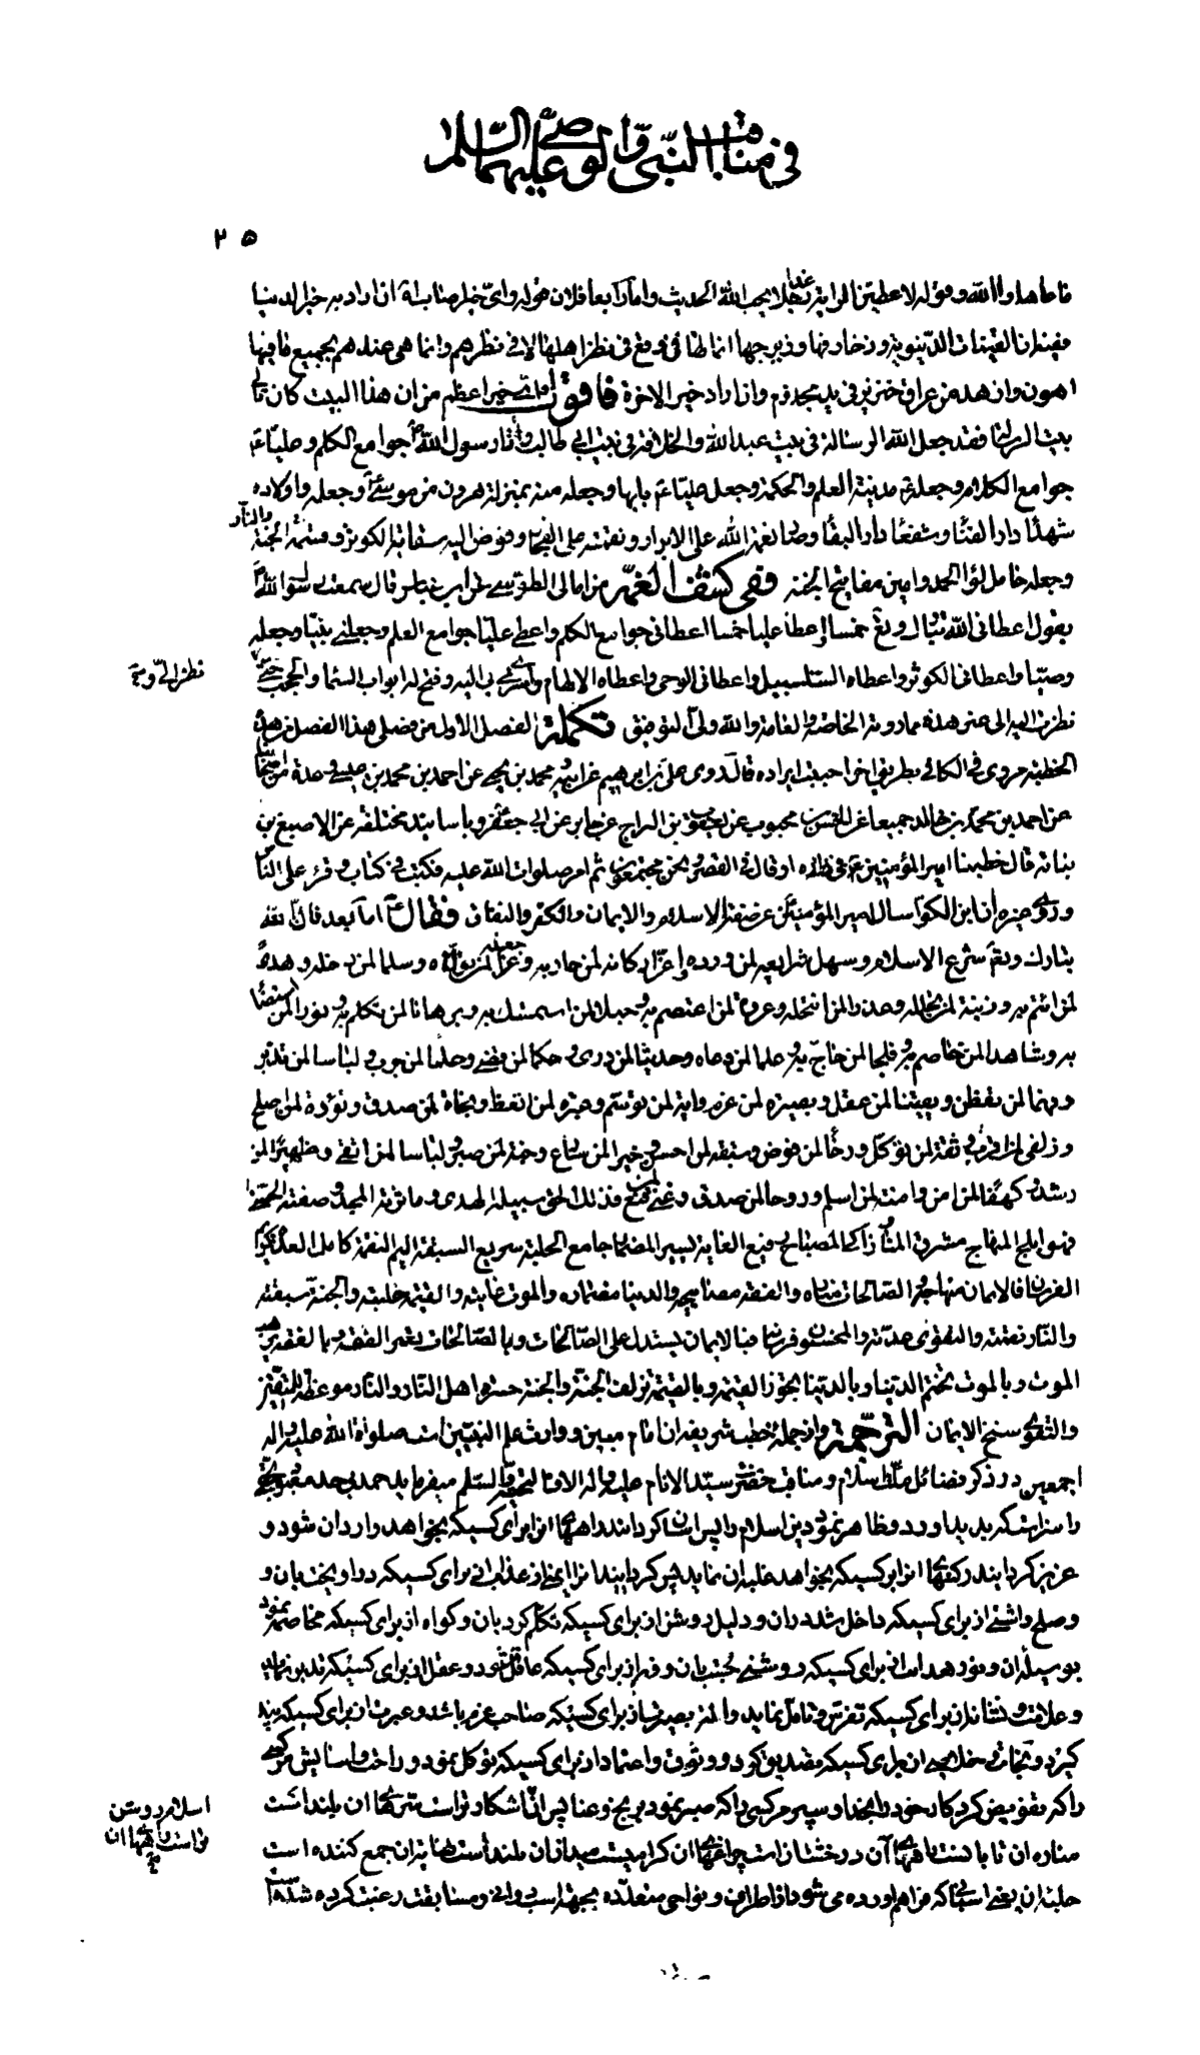 في مناقب النبي والوصي عليهما السلام
۲۵
ما عاهدوا الله وقوله لاعطين الراية غدا رجلا يحب الله الحديث واما رابعا فلان قوله واي خير اصابه ان اراد به خير الدنيا
ففيه ان القينات الدنيوية وزخارفها وزبرجها انما وقع في نظر اهلها لا في نظرهم وانما هي عندهم بجميع ما فيها
اهون وازهد من عراق خنزير في يد مجذوم وان اراد خير الاخرة فاقول اي خير اعظم من ان هذا البيت كان
بيت الرسالة فقد جعل الله الرسالة في بيت عبد الله والخلافة في بيت ابي طالب واتا رسول الله ص جوامع الكلم وعليا ع
جوامع الكلام وجعله مدينة العلم والحكمة وجعل عليا ع بابها وجعله منه بمنزلة هرون من موسى وجعله واولاده
شهداء دار الفناء وشفعاء دار البقاء نعمة الله على الابرار ونقمته على الفجار وفوض اليه سقاية الكوثر وقسمة الجنة والنار
وجعله حامل لواء الحمد وامين مفاتيح الجنة ففي كشف الغمة من امالي الطوسي عن ابن عباس قال سمعت رسول الله ص
يقول اعطاني الله تبارك وتعالى خمسا واعطى عليا خمسا اعطاني جوامع الكلم واعطى عليا جوامع العلم وجعلني نبيا وجعله
وصيا واعطاني الكوثر واعطاه السلسبيل واعطاني الوحي واعطاه الالهام واسرى بي اليه وفتح له ابواب السماء والحجب حتى
نظر الي و
نظرت اليه الى غير هذه مما روته الخاصة والعامة والله ولي التوفيق تكملة الفصل الأول من فصلي هذا الفصل من هذه
الخطبة مروي في الكافي بطريق اخر احببت ايراده قال روى علي بن ابراهيم عن ابيه ومحمد بن يحيى عن احمد بن محمد بن عيسى وعدة من اصحابنا
عن احمد بن محمد بن خالد جميعا عن الحسن بن محبوب عن يعقوب السراج عن جابر عن ابي جعفر وباسانيد مختلفة عن الاصبغ بن
نباتة قال خطبنا امير المؤمنين ع في داره او قال في القصر ونحن مجتمعون ثم امر صلوات الله عليه فكتب في كتاب وقرء على الناس
وروى غيره ان ابن الكوا سال امير المؤمنين عن صفة الاسلام والايمان والكفر والنفاق فقال ع اما بعد فان الله
تبارك وتعالى شرع الاسلام وسهل شرايعه لمن ورده واعز اركانه لمن حاربه وجعله عزا لمن تولاه وسلما لمن دخله وهدى
لمن ائتم به وزينة لمن تجلله وعذرا لمن انتحله وعروة لمن اعتصم به وحبلا لمن استمسك به وبرهانا لمن تكلم به ونورا لمن استضاء
به وشاهدا لمن خاصم به وفلجا لمن حاج به وعلما لمن وعاه وحديثا لمن روى وحكما لمن قضى وحلما لمن جرب ولباسا لمن تدبر
وفهما لمن تفطن ويقينا لمن عقل وبصيرة لمن عزم واية لمن توسم وعبرة لمن اتعظ ونجاة لمن صدق وتؤدة لمن اصلح
وزلفى لمن اقترب وثقة لمن توكل ورخاء لمن فوض وسبقة لمن احسن وخيرا لمن سارع وجنة لمن صبر ولباسا لمن اتقى وظهيرا لمن
رشد وكهفا لمن امن وامنة لمن اسلم وروحا لمن صدق وغنى لمن قنع فذلك الحق سبيله الهدى وماثرته المجد وصفته الحسنى
فهو ابلج المنهاج مشرق المنار ذاكي المصباح رفيع الغاية يسير المضمار جامع الحلبة سريع السبقة اليم النقمة كامل العدة كريم
الفرسان فالايمان منهاجه والصالحات مناره والفقه مصابيحه والدنيا مضماره والموت غايته والقيمة حلبته والجنة سبقته
والنار نقمته والتقوى عدته والمحسنون فرسانه فبالايمان يستدل على الصالحات وبالصالحات يعمر الفقه وبالفقه يرهب
الموت وبالموت تختم الدنيا وبالدنيا تجوز القيمة وبالقيمة تزلف الجنة والجنة حسرة اهل النار والنار موعظة للمتقين
والتقوى سنخ الايمان الترجمة واز جمله خطب شريفه ان امام مبين ووارث علم النبيين است صلوات الله عليه واله
اجمعين در ذكر فضائل اسلام ومناقب حضرت سيد الانام عليه واله الاف التحية والسلم ميفرمايد حمد بى حد معبود بحق
را سزاست كه پديد اورد وظاهر نمود دين اسلام را پس اسان گردانيد راههاى انرا براى كسيكه بخواهد وارد ان شود و
عزيز گردانيد ركنهاى انرا بر كسيكه بخواهد غلبه ان نمايد پس گردانيد انرا ايمنى از عذاب از براى كسيكه در اويخت بان و
وصلح واشتى از براى كسيكه داخل شد در ان ودليل روشن از براى كسيكه تكلم كرد بان وگواه از براى كسيكه مخاصمه نمود
بوسيله ان ونور هدايت از براى كسيكه روشنى جست بان وفهم از براى كسيكه عاقل شود وعقل از براى كسيكه تدبر نمايد
وعلامت ونشانه از براى كسيكه تفرس وتامل نمايد وبصيرت از براى كسيكه صاحب عزم باشد وعبرت از براى كسيكه پند
گيرد ونجات از براى كسيكه تصديق كرد ووثوق واعتماد از براى كسيكه توكل نمود وراحت واسايش هر كسى
را كه تفويض كرد كار خود را بخدا وسپر هر كسى را كه صبر نمود برنج وعنا پس اشكار تراست ان بلند است
اسلام روشن تراست راههاى ان
مناره ان تابانست راههاى آن درخشانست چراغهاى ان گرامى است ميدان ان بلند است ان جمع كننده است
حلبه ان يعنى اسبانى كه فراهم اورده مى شود از اطراف ونواحى متعدده بجهة اسب دوانى ومسابقت رغبت كرده شده است